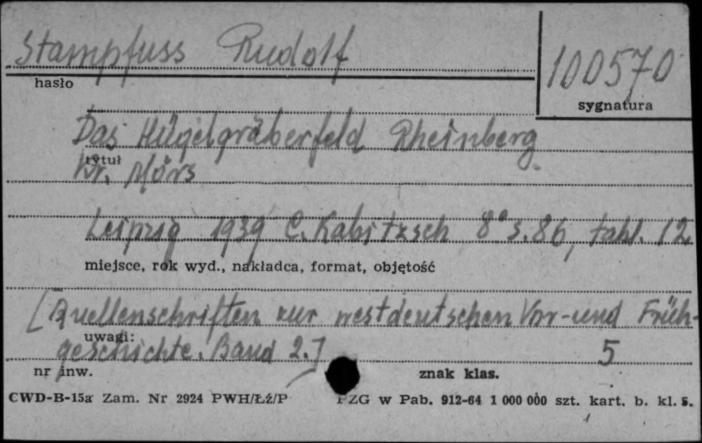 Stampfuss Rudolf
100570
hasło
sygnatura
Das Hügelgräberfeld Rheinberg
tytuł
Kr. Mörs
Leipzig 1939 C. Kabitzsch 8° s. 86, tabl. 12
miejsce, rok wyd., nakładca, format, objętość
[Quellenschriften zur westdeutschen Vor- und Früh-
uwagi:
geschichte. Band 2.] 5
nr inw. znak klas.
CWD-B-15a Zam. Nr 2924 PWH/Łź/P PZG w Pab. 912-64 1 000 000 szt. kart. b. kl. 5.